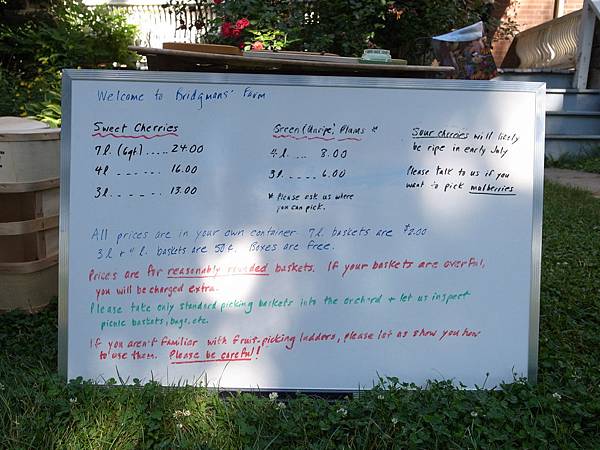 Welcome to Bridgmans' Farm
Sweet Cherries
7 l. (6qt.) ..... 24.00
4 l. ...... 16.00
3 l. ...... 13.00
Green (Unripe) Plums *
4 l. ... 8.00
3 l. .... 6.00
* Please ask us where
you can pick.
Sour cherries will likely
be ripe in early July
Please talk to us if you
want to pick mulberries.
All prices are in your own container. 7 l. baskets are $2.00
3 l. & 4 l. baskets are 50¢. Boxes are free.
Prices are for reasonably rounded baskets. If your baskets are overful,
you will be charged extra.
Please take only standard picking baskets into the orchard & let us inspect
picnic baskets, bags, etc.
If you aren't familiar with fruit-picking ladders, please let us show you how
to use them. Please be careful!